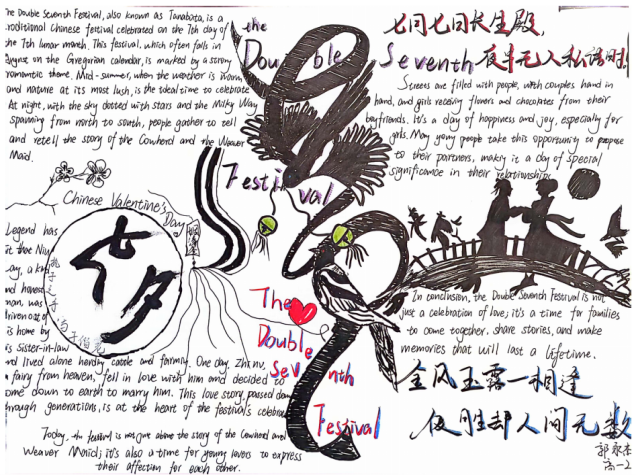 The Double Seventh Festival, also known as Tanabata, is a
traditional Chinese festival celebrated on the 7th day of
the 7th lunar month. This festival, which often falls in
August on the Gregorian calendar, is marked by a strong
romantic theme. Mid-summer, when the weather is warm
and nature at its most lush, is the ideal time to celebrate
At night, with the sky dotted with stars and the Milky Way
spanning from north to south, people gather to tell
and retell the story of the Cowherd and the Weaver
Maid.
the
Double
Seventh
Festival
七月七日长生殿,
夜半无人私语时!
Streets are filled with people, with couples hand in
hand, and girls receiving flowers and chocolates from their
boyfriends. It's a day of happiness and joy, especially for
girls. May young people take this opportunity to propose
to their partners, making it a day of special
significance in their relationships
Chinese Valentine's
Day
七夕
Legend has
it that Niu
was
is home by
is sister-in-law
nd lived alone herding cattle and farming. One day, Zhinu,
a fairy from heaven, fell in love with him and decided to
come down to earth to marry him. This love story, passed down
through generations, is at the heart of the festival's celebra
Today, the festival is not just about the story of the Cowherd and
Weaver Maid; it's also a time for young lovers to express
their affection for each other.
The
Double
Seventh
Festival
In conclusion, the Double Seventh Festival is not
just a celebration of love; it's a time for families
to come together, share stories, and make
memories that will last a lifetime.
金风玉露一相逢
便胜却人间无数
高一2